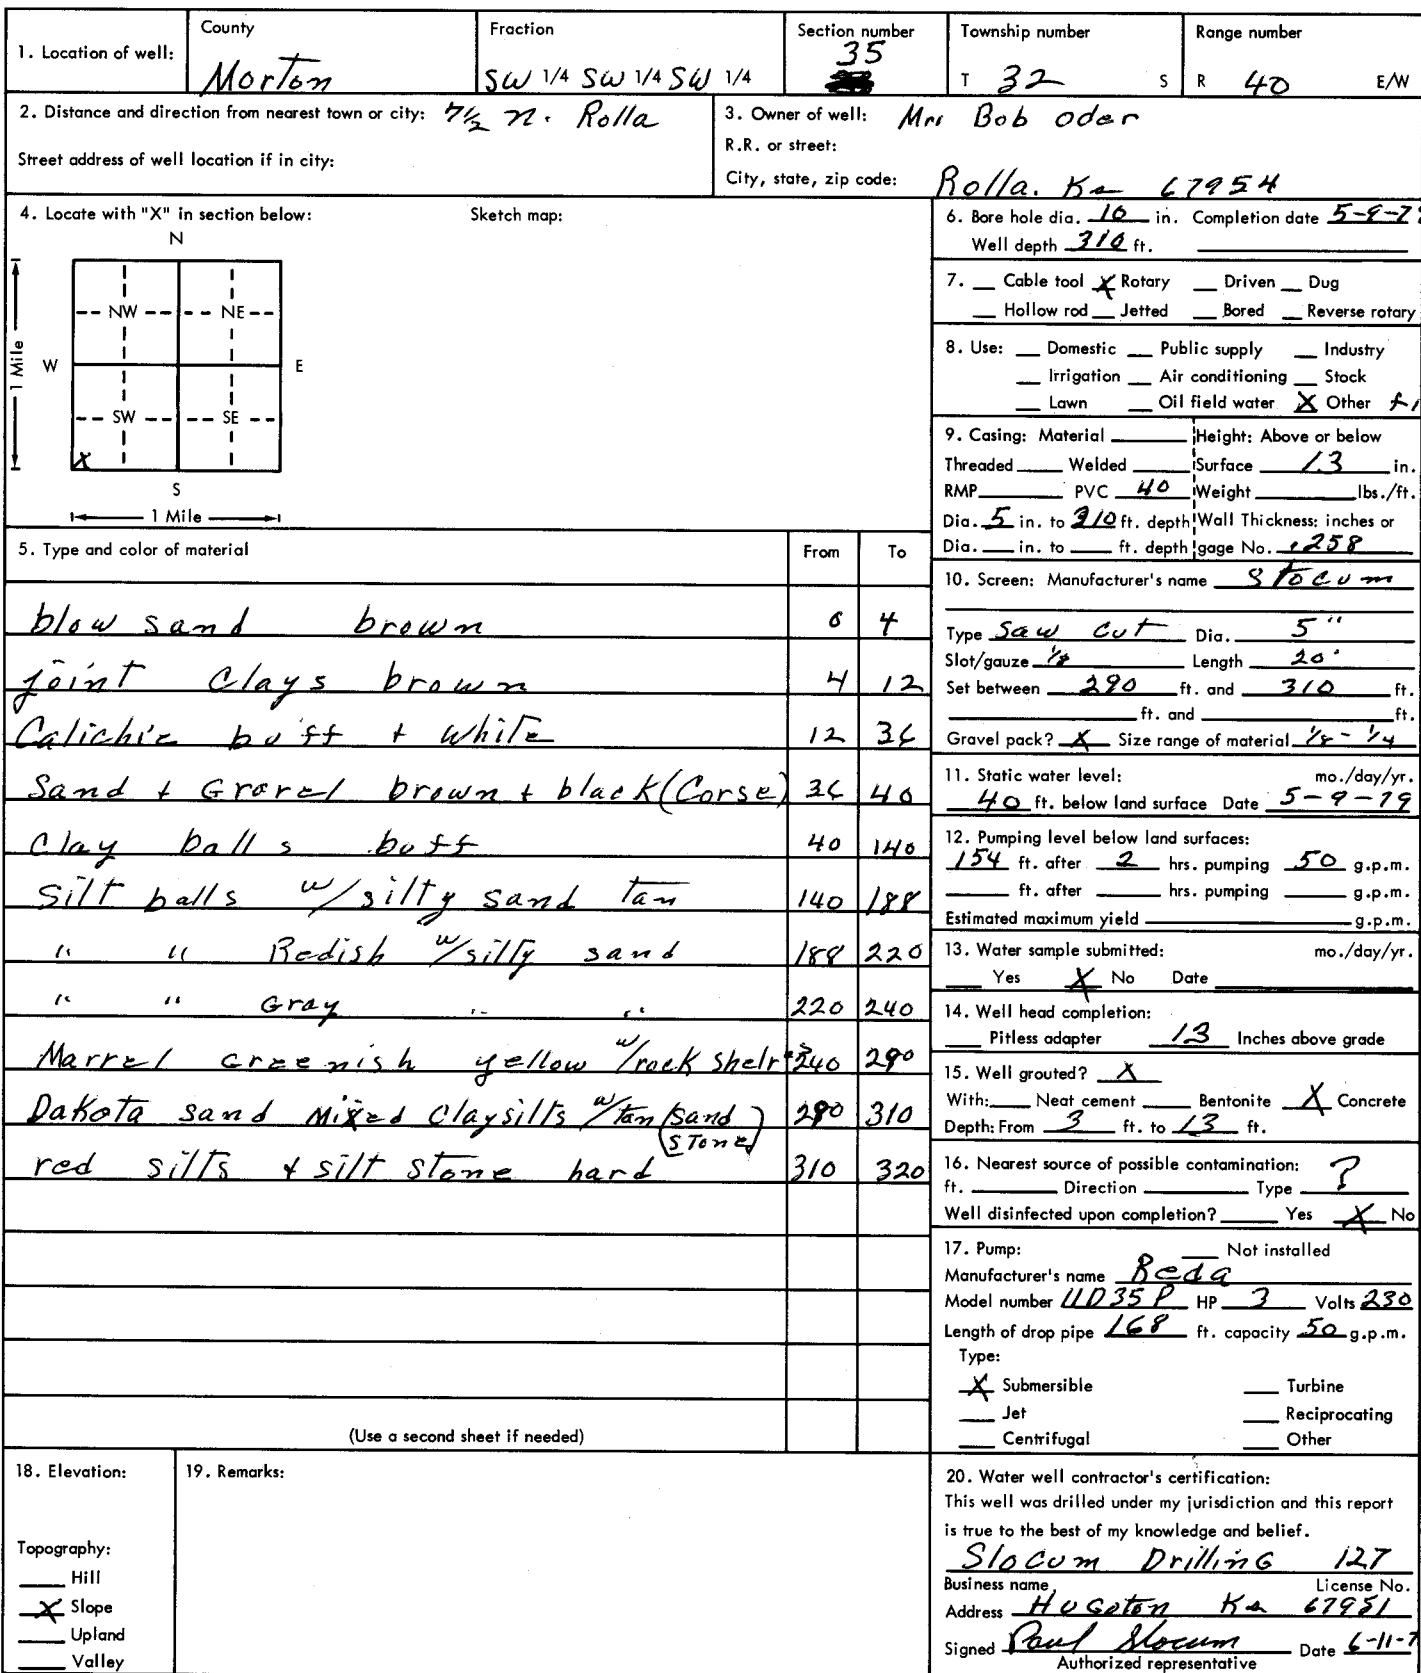 1. Location of well:
County
Morton
Fraction
SW 1/4 SW 1/4 SW 1/4
Section number
35
Township number
T 32 S
Range number
R 40 E/W
2. Distance and direction from nearest town or city: 7½ N. Rolla
Street address of well location if in city:
3. Owner of well: Mrs Bob Oder
R.R. or street:
City, state, zip code: Rolla. Ks 67954
4. Locate with "X" in section below:
Sketch map:
N
NW NE
W E
1 Mile
SW SE
X
S
1 Mile
5. Type and color of material From To
blow sand brown 0 4
joint Clays brown 4 12
Calichie buff + White 12 36
Sand + Gravel brown + black (Corse) 36 40
Clay balls buff 40 140
Silt balls w/silty sand tan 140 188
" " Redish w/silty sand 188 220
" " Gray " " 220 240
Marrel Greenish yellow w/rock 240 290
Dakota sand Mixed Claysilts w/tan (Sand Stone) 290 310
red silts + silt stone hard 310 320
(Use a second sheet if needed)
6. Bore hole dia. 10 in. Completion date 5-9-7
Well depth 310 ft.
7. Cable tool X Rotary Driven Dug
Hollow rod Jetted Bored Reverse rotary
8. Use: Domestic Public supply Industry
Irrigation Air conditioning Stock
Lawn Oil field water X Other
9. Casing: Material Height: Above or below
Threaded Welded Surface 13 in.
RMP PVC 40 Weight lbs./ft.
Dia. 5 in. to 310 ft. depth Wall Thickness: inches or
Dia. in. to ft. depth gage No. .258
10. Screen: Manufacturer's name Slocum
Type Saw Cut Dia. 5"
Slot/gauze 1/8 Length 20'
Set between 290 ft. and 310 ft.
ft. and ft.
Gravel pack? X Size range of material 1/8 - 1/4
11. Static water level: mo./day/yr.
40 ft. below land surface Date 5-9-79
12. Pumping level below land surfaces:
154 ft. after 2 hrs. pumping 50 g.p.m.
ft. after hrs. pumping g.p.m.
Estimated maximum yield g.p.m.
13. Water sample submitted: mo./day/yr.
Yes X No Date
14. Well head completion:
Pitless adapter 13 Inches above grade
15. Well grouted? X
With: Neat cement Bentonite X Concrete
Depth: From 3 ft. to 13 ft.
16. Nearest source of possible contamination:
ft. Direction Type ?
Well disinfected upon completion? Yes X No
17. Pump: Not installed
Manufacturer's name Reda
Model number 11D35P HP 3 Volts 230
Length of drop pipe 168 ft. capacity 50 g.p.m.
Type:
X Submersible Turbine
Jet Reciprocating
Centrifugal Other
18. Elevation:
Topography:
Hill
X Slope
Upland
Valley
19. Remarks:
20. Water well contractor's certification:
This well was drilled under my jurisdiction and this report
is true to the best of my knowledge and belief.
Slocum Drilling 127
Business name License No.
Address Hugoton Ks 67951
Signed Paul Slocum Date 6-11-7
Authorized representative